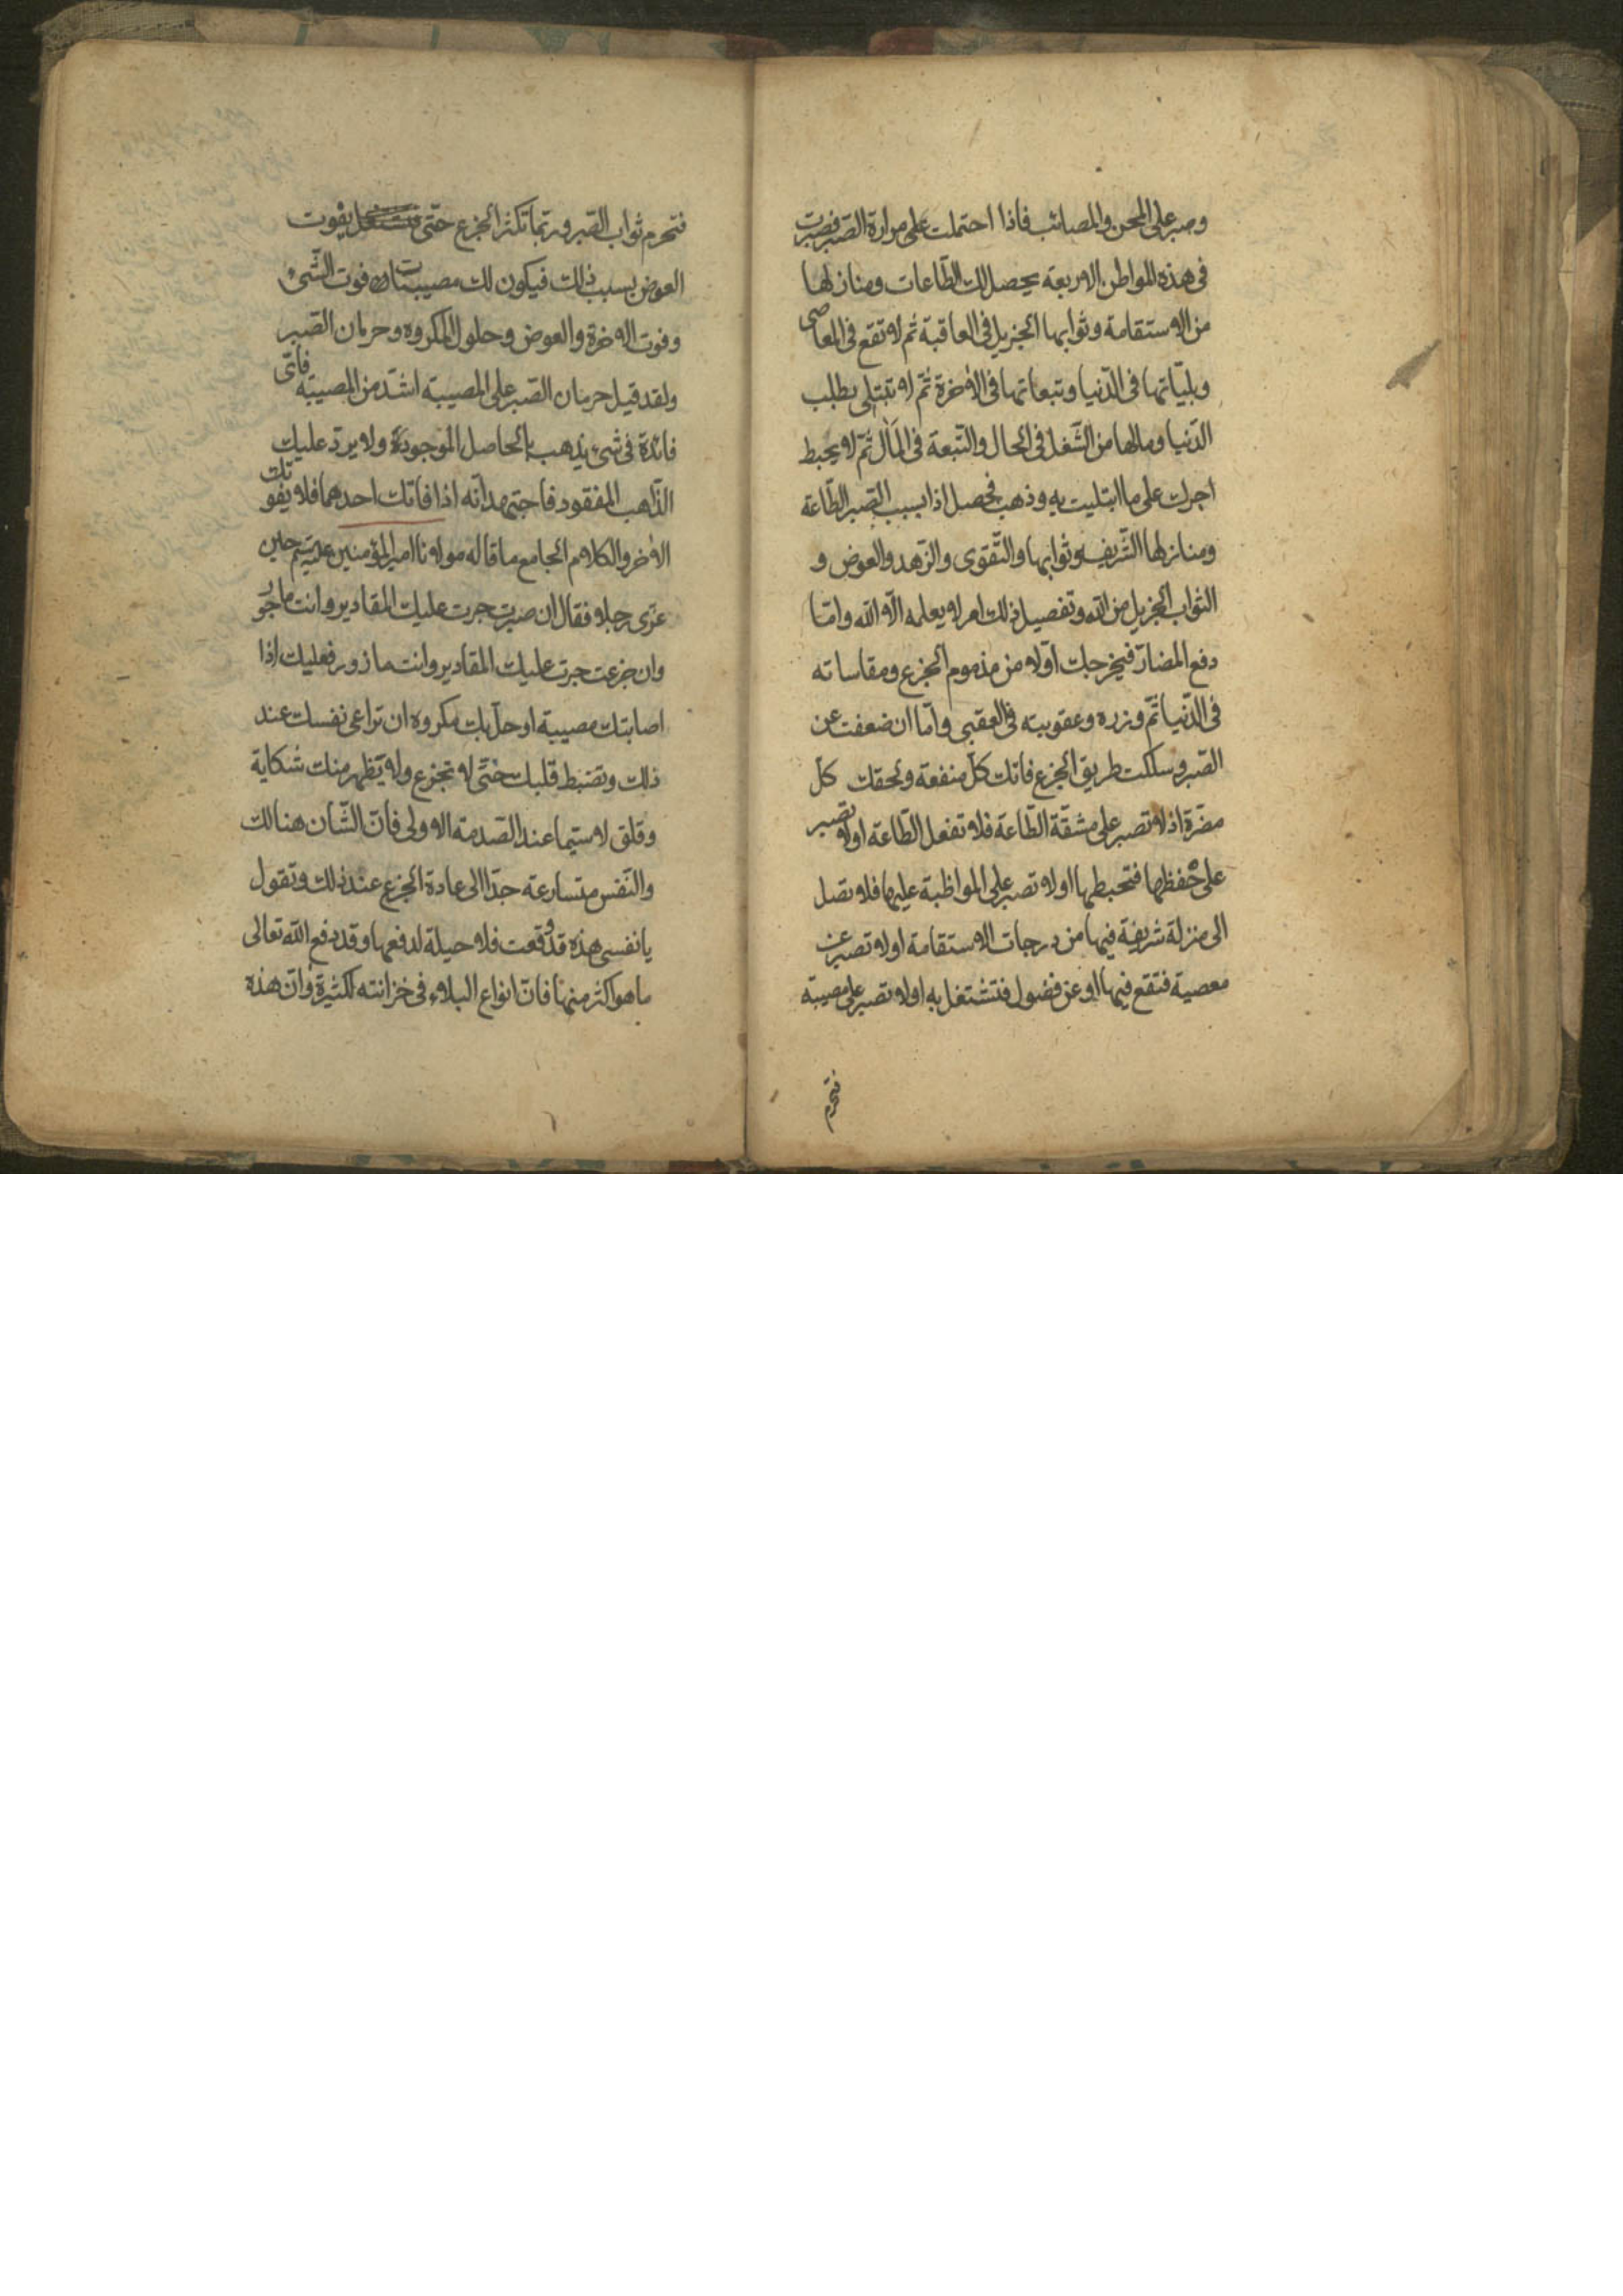 وصبر على المحن والمصائب فاذا احتملت على مرارة الصّبر فصبرت
فى هذه المواطن الاربعة يحصل لك الطّاعات ومنازلها
من الاستقامة وثوابها الجزيل فى العاقبة ثم لا تقع فى المعاصى
وبليّاتها فى الدّنيا وتبعاتها فى الاخرة ثمّ لا تبتلى بطلب
الدّنيا ومالها من الشّغل فى الحال والتّبعة فى المآل ثمّ لا يحبط
اجرك على ما ابتليت به وذهب فحصل اذا بسبب الصّبر الطّاعة
ومنازلها الشّريفه وثوابها والتّقوى والزّهد والعوض و
الثواب الجزيل من الله وتفصيل ذلك امر لا يعلمه الّا الله وامّا
دفع المضارّ فيخرجك اوّلا من مذموم الجزع ومقاساته
فى الدّنيا ثمّ وزره وعقوبيته فى العقبى وامّا ان ضعفت عن
الصّبر وسلكت طريق الجزع فاتك كلّ منفعة ولحقك كلّ
مضرّة اذ لا تصبر على مشقّة الطّاعة فلا تفعل الطّاعة اولا تصبر
على حفظها فتحبطها اولا تصبر على المواظبة عليها فلا تصل
الى منزلة شريفة فيها من درجات الاستقامة اولا تصبر عن
معصية فتقع فيها او عن فضول فتشتغل به اولا تصبر على مصيبة
فتحرم
فتحرم ثواب الصّبر وربّما تكثر الجزع حتّى يفوت
العوض بسبب ذلك فيكون لك مصيبتان فوت الشّىء
وفوت الاخرة والعوض وحلول المكروه وحرمان الصّبر
ولقد قيل حرمان الصّبر على المصيبة اشدّ من المصيبة فاىّ
فائدة فى شىء يذهب بالحاصل الموجودة ولا يردّ عليك
الذّاهب المفقود فاجتهد انّه اذا فاتك احدهما فلا يفوتك
الاخر والكلام الجامع ما قاله مولانا امير المؤمنين عليه السلم حين
عزّى رجلا فقال ان صبرت جرت عليك المقادير وانت ماجور
وان جزعت جرت عليك المقادير وانت مازور فعليك اذا
اصابتك مصيبة او حلّ بك مكروه ان تراعى نفسك عند
ذلك وتضبط قلبك حتّى لا تجزع ولا يظهر منك شكاية
وقلق لا سيّما عند الصّدمة الاولى فانّ الشّان هنالك
والنّفس متسارعة جدّا الى عادة الجزع عند ذلك وتقول
يا نفسى هذه قد وقعت فلا حيلة لدفعها وقد دفع الله تعالى
ما هو اكثر منها فانّ انواع البلاء فى خزانته لكثيرة وانّ هذه